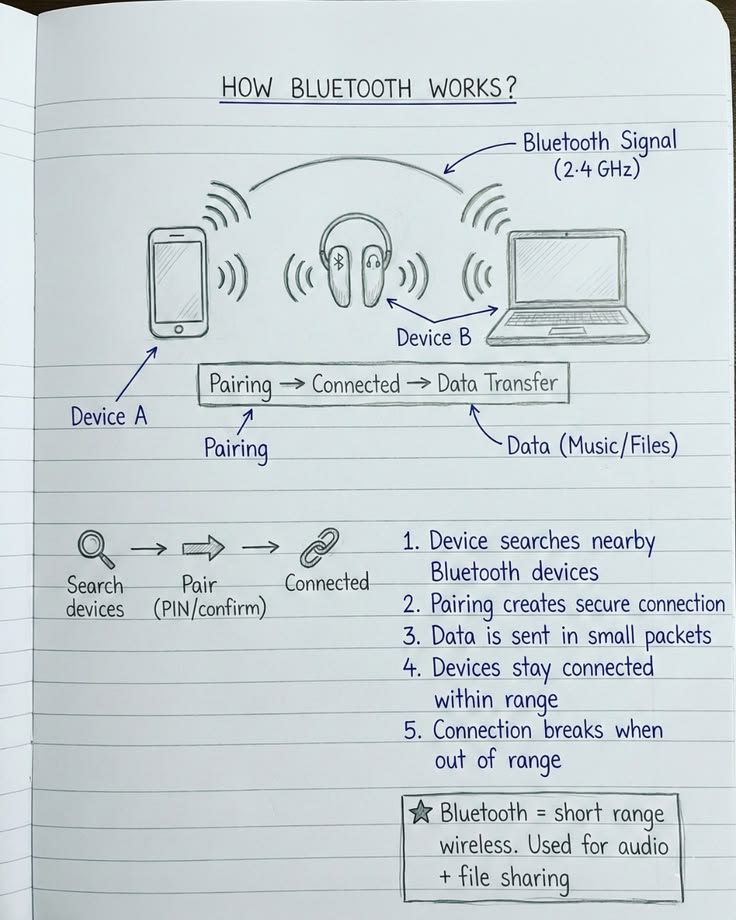 HOW BLUETOOTH WORKS?
Bluetooth Signal
(2.4 GHz)
Device B
Device A
Pairing → Connected → Data Transfer
Pairing
Data (Music/Files)
Search
devices
Pair
(PIN/confirm)
Connected
1. Device searches nearby
Bluetooth devices
2. Pairing creates secure connection
3. Data is sent in small packets
4. Devices stay connected
within range
5. Connection breaks when
out of range
★ Bluetooth = short range
wireless. Used for audio
+ file sharing